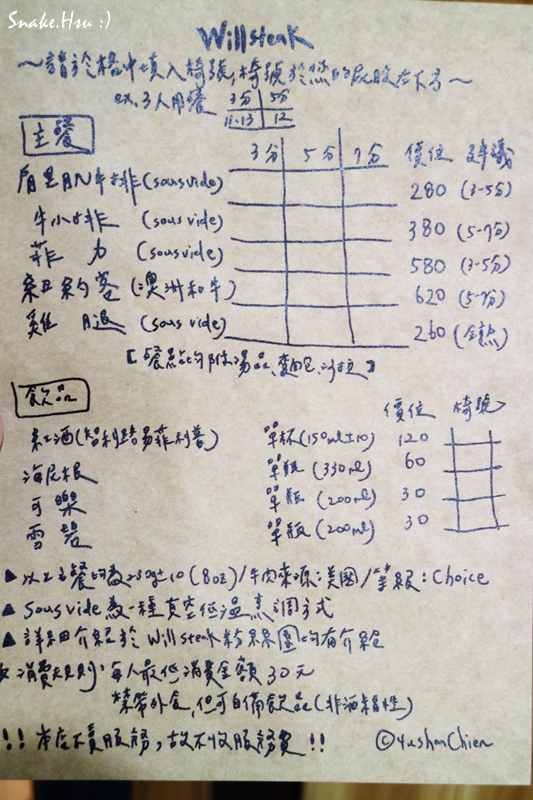 Snake.Hsu :)
Willsteak
～請於格中填入椅號,椅號於您的屁股左下方～
ex. 3人用餐 3分 5分
11.13 12
主餐
3分 5分 7分 價位 建議
肩里肌牛排(sousvide) 280 (3-5分)
牛小排 (sousvide) 380 (5-7分)
菲力 (sousvide) 580 (3-5分)
紐約客 (澳洲和牛) 620 (5-7分)
雞腿 (sousvide) 260 (全熟)
【餐點均附湯品、麵包、沙拉】
飲品
價位 椅號
紅酒(智利路易菲利普) 單杯(150ml±10) 120
海尼根 單瓶 (330ml) 60
可樂 單瓶 (200ml) 30
雪碧 單瓶 (200ml) 30
▲以上主餐均為230g±10 (8oz)/牛肉來源:美國/等級:Choice
▲ Sousvide為一種真空低溫烹調方式
▲ 詳細介紹於Willsteak粉絲團均有介紹
消費規則:每人最低消費金額30元
禁帶外食,但可自備飲品(非酒精性)
!! 本店不賣服務,故不收服務費 !! ©YushanChien